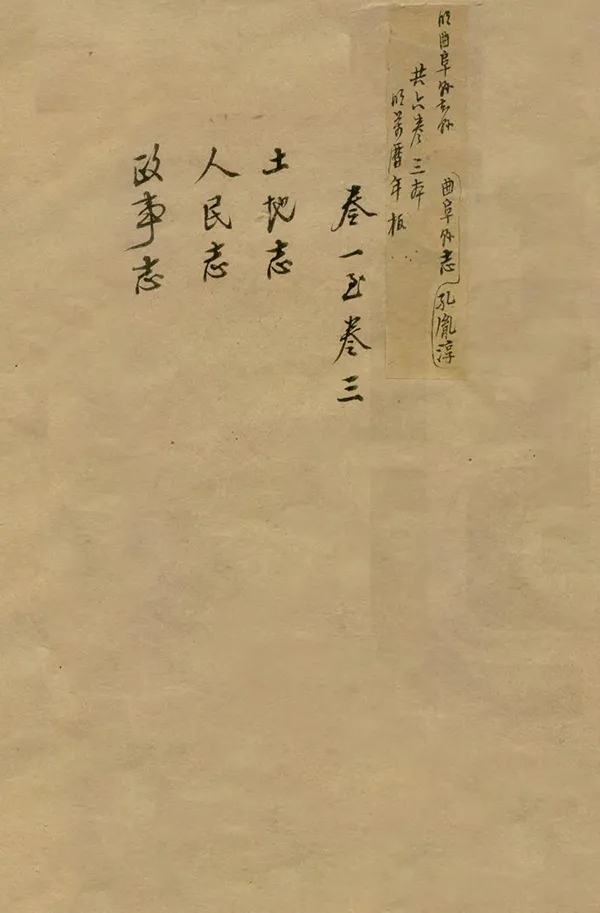 明曲阜县志 曲阜县志 孔胤淳
共六卷三本
明万曆年板
卷一至卷三
土地志
人民志
政事志